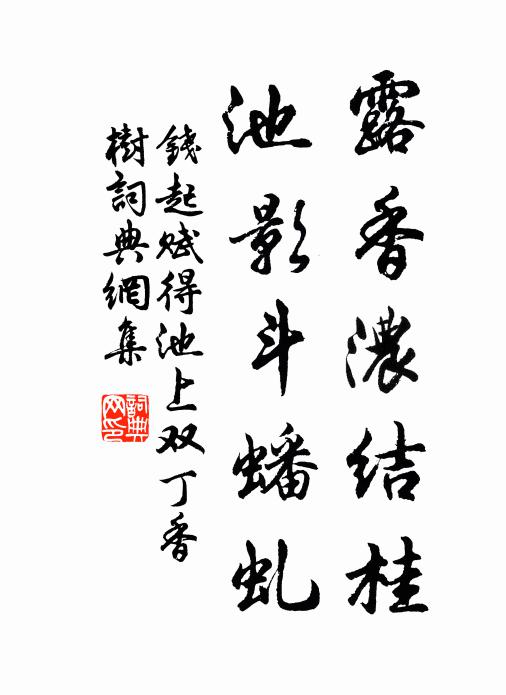 露香濃結桂
池影斗蟠虬
錢起赋得池上双丁香
樹詞典網集
詞典
网印